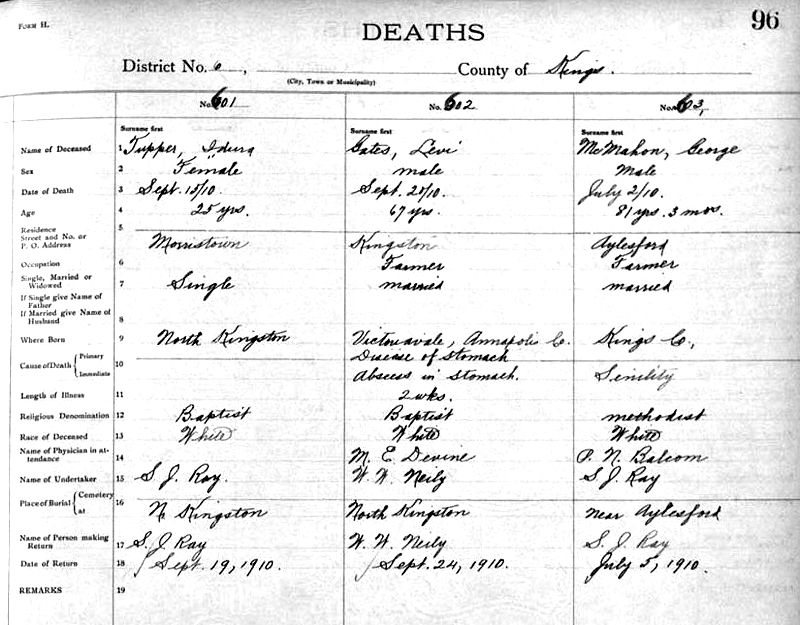 FORM H.
96
DEATHS
District No. 6, County of Kings.
(City, Town or Municipality)
No. 601 No. 602 No. 603,
Surname first Surname first Surname first
Name of Deceased 1 Tupper, Gates, Levi McMahon, George
Sex 2 Female male Male
Date of Death 3 Sept. 15/10. Sept. 20/10. July 2/10.
Age 4 25 yrs. 67 yrs. 81 yrs. 3 mos.
Residence
Street and No. or 5
P. O. Address Morristown Kingston Aylesford
Occupation 6 Farmer Farmer
Single, Married or
Widowed 7 Single married married
If Single give Name of
Father
If Married give Name of
Husband 8
Where Born 9 North Kingston Victoriavale, Annapolis C. Kings C.,
Cause of Death { Primary Disease of Stomach
10
Immediate Abscess in Stomach. Senility
Length of Illness 11 2 wks.
Religious Denomination 12 Baptist Baptist methodist
Race of Deceased 13 White White White
Name of Physician in at-
tendance 14 M. E. Devine P. N. Balcom
Name of Undertaker 15 S. J. Ray. W. W. Neily S. J. Ray
Place of Burial { Cemetery 16
at N. Kingston North Kingston near Aylesford
Name of Person making
Return 17 S. J. Ray W. W. Neily S. J. Ray
Date of Return 18 Sept. 19, 1910. Sept. 24, 1910. July 5, 1910.
REMARKS 19